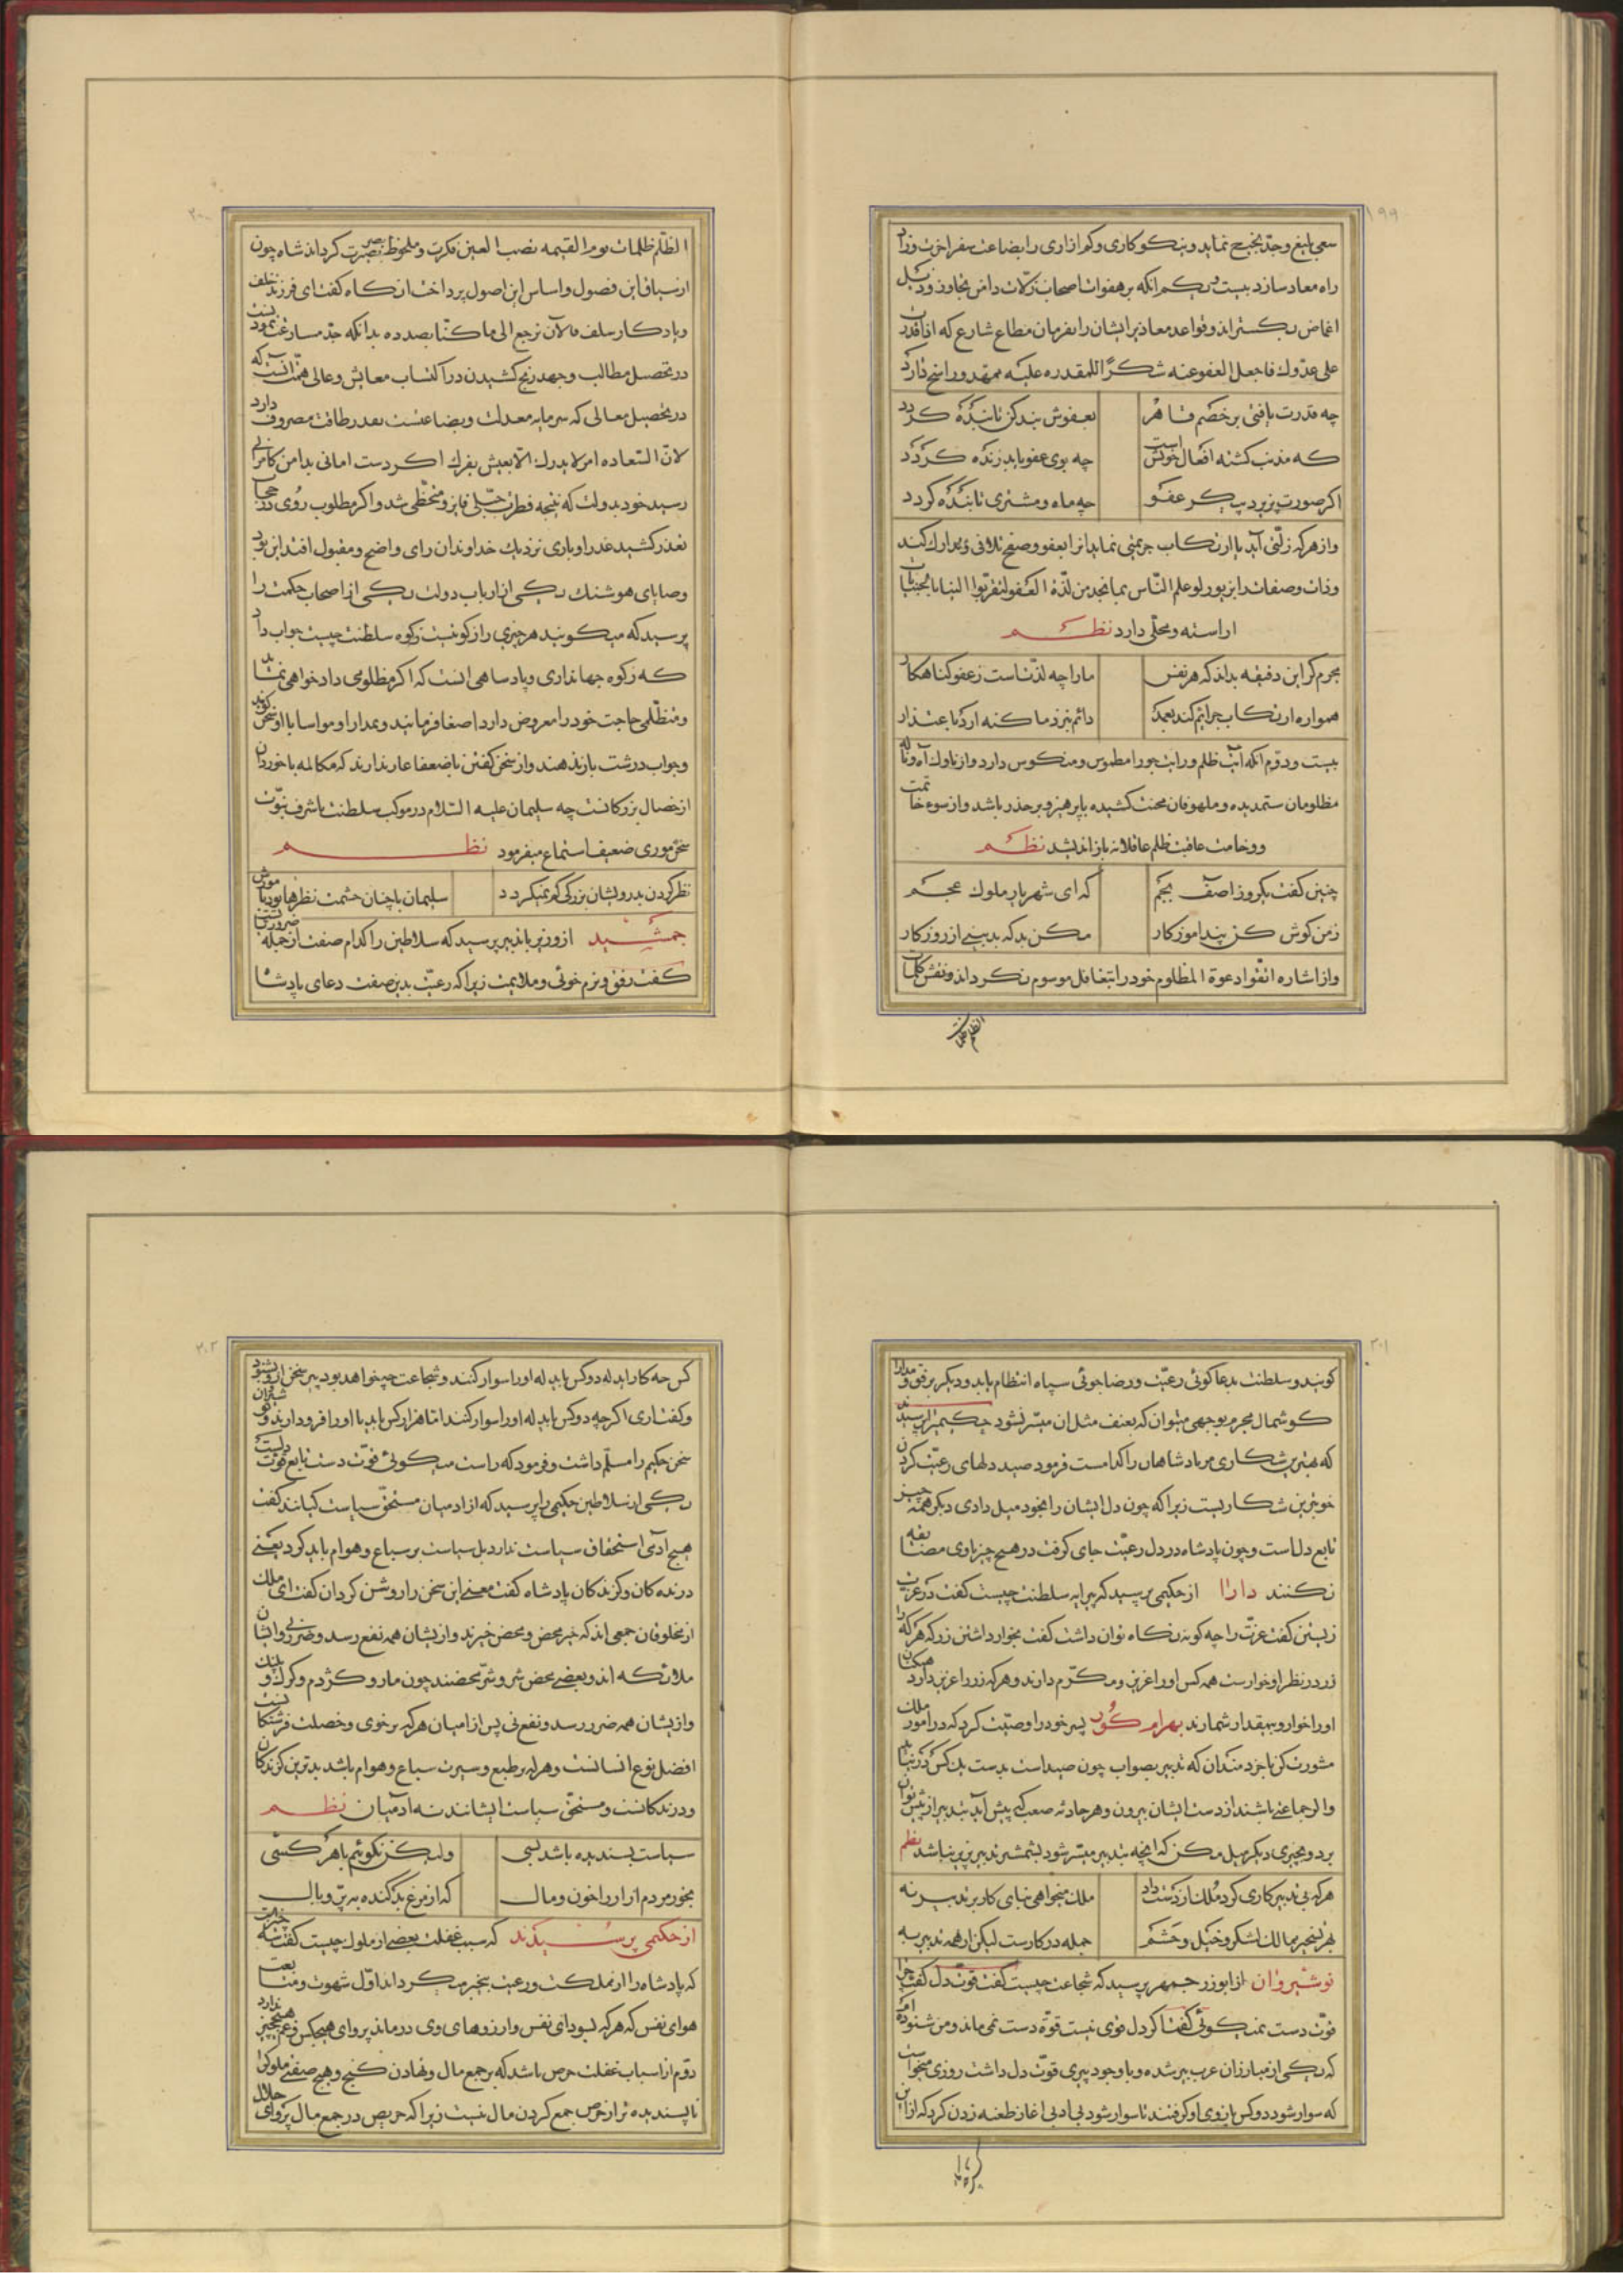 ۱۹۹
سعی بلیغ وجدّ نجیح نماید و بنیکوکاری وکم ازاری را بضاعت سفر اخرت وزاد
راه معاد سازد بیست ویکم انکه بر هفوات اصحاب زلات دامن تجاوز و ذیل
اغماض بکستراند وقواعد معاذیر ایشان را بفرمان مطاع شارع که اذا قدرت
علی عدوك فاجعل العفو عنه شكرًا للمقدره علیه ممهد و راسخ دارد
چه قدرت یافتی بر خصم قاهر
بعفوش بنده کن تا بنده کردد
که مذنب کشته افعال خویش است
چه بوی عفو یابد زنده کردد
اکر صورت پزیرد پیکر عفو
چه ماه ومشتری تابنده کردد
واز هرکه زلتی آید یا ارتکاب جریمتی نماید انرا بعفو وصفح تلافی وتدارك کند
وذات وصفات را بزیور لو علم الناس بما نجد من لذة العفو لتقربوا الینا بالجنایات
اراسته ومحلی دارد نظم
مجرم کر این دقیقه بداند که هر نفس
مارا چه لذتست ز عفو کناهکار
همواره ارتکاب جرائم کند بعمد
دائم بنزد ما کنه ارد باعتذار
بیست ودوّم انکه آیت ظلم ورایت جور را مطموس ومنکوس دارد واز ناوك آه وناله
مظلومان ستمدیده وملهوفان محنت کشیده بپرهیز وبر حذر باشد واز سوء خاتمت
ووخامت عاقبت ظلم عاقلانه باز اندیشد نظم
چنین کفت یکروز اصف بجم
که ای شهریار ملوك عجم
زمن کوش کن پند اموزکار
مکن بد که بد بینی از روزکار
واز اشاره اتقوا دعوة المظلوم خود را بتغافل موسوم نکرداند ونقش کلمات
الظلم ظلمات
۲۰۰
الظلم ظلمات یوم القیمه نصب العین فکرت وملحوظ بصر بصیرت کرداند شاه چون
از سیاق این فصول واساس این اصول پرداخت انکاه کفت ای فرزند خلف
ویادکار سلف فالآن نرجع الی ما کنا بصدده بدانکه جدّ مسارعت نمودنست
در تحصیل مطالب وجهد رنج کشیدن در اکتساب معایش وعالی همّت آنست که
در تحصیل معالی که سرمایه معدلت وبضاعتست بقدر طاقت مصروف دارد
لانّ السّعاده امر لا یدرك الّا بعیش یفرك اکر دست امانی بدامن کامرانی
رسید خود بدولت که نتیجه فطرت جبلّی فایز ومتحظّی شد واکر مطلوب روی در حجاب
تعذر کشید عذر او باری نزدیك خداوندان رای واضح ومقبول افتد این بود
وصایای هوشنك یکی از ارباب دولت یکی از اصحاب حکمت را
پرسید که میکویند هر چیزی را زکوتیست زکوه سلطنت چیست جواب داد
که زکوه جهانداری وپادساهی انست که اکر مظلومی دادخواهی نماید
ومتظلمی حاجت خود را معروض دارد اصغا فرمایند وبمدارا ومواسا با او سخن کویند
وجواب درشت باز ندهند واز سخن کفتن با ضعفا عار ندارند که مکالمه با خوردان
از خصال بزرکانست چه سلیمان علیه السّلام در موکب سلطنت با شرف نبوّت
سخن موری ضعیف استماع میفرمود نظم
نظر کردن بدرویشان بزرکی کم نمیکردد
سلیمان با چنان حشمت نظرها بود با مورش
جمشید از وزیر با تدبیر پرسید که سلاطین را کدام صفت از جمله ضرورتست
کفت رفق ونرم خوئی وملایمت زیرا که رعیّت بدین صفت دعای پادشاه
۲۰۱
کویند وسلطنت بدعاکوئی رعیّت ورضاجوئی سپاه انتظام یابد ودیکر برفق ومدارا
کوشمال مجرم بوجهی میتوان که بعنف مثل ان میسّر نشود حکیمی را پرسیدند
که بهترین شکاری مر پادشاهان را کدامست فرمود صید دلهای رعیّت کردن
خوبترین شکاریست زیرا که چون دل ایشان را بخود میل دادی دیکر همه چیز
تابع دلست وچون پادشاه در دل رعیّت جای کرفت در هیچ چیز با وی مضایقه
نکنند دارا از حکیمی پرسید که پیرایه سلطنت چیست کفت در عزت
زیستن کفت عزّت را چه کونه نکاه توان داشت کفت بخوار داشتن زر که هرکه را
زر در نظر او خوارست همه کس او را عزیز ومکرّم دارند وهرکه زر را عزیز دارد همکنان
او را خوار وبیمقدار شمارند بهرام کور پسر خود را وصیّت کرد که در امور ملك
مشورت کن با خردمندان که تدبیر بصواب چون صیداست بدست یك کس در نیاید
واکر جماعتی باشند از دست ایشان بیرون وهر حادثه صعب که پیش آید بتدبیر از پیش توان
برد وبچیزی دیکر میل مکن که انچه بتدبیر میسّر شود بشمشیر تدبیر پزیر نباشد نظم
هرکه بی تدبیر کاری کرد ملك از دست داد
ملك میخواهی بنای کار بر تدبیر نه
بهر تسخیر ممالك لشکر وخیل وحشم
جمله در کارست لیکن از همه تدبیر به
نوشیروان از ابوزرجمهر پرسید که شجاعت چیست کفت قوّت دل کفت چرا
قوّت دست نمیکوئی کفت اکر دل قوی نیست قوّه دست نمی ماند ومن شنوده ام
که یکی از مبارزان عرب پیر شده وبا وجود پیری قوّت دل داشت روزی میخواست
که سوار شود دو کس بازوی او کرفتند تا سوار شود بی ادبی اغاز طعنه زدن کرد که از این
۲۰۲
کس چه کار اید که دو کس باید که او را سوار کنند وشجاعت چه خواهد بود پیر سخن او بشنود
وکفت اری اکر چه دو کس باید که او را سوار کنند امّا هزار کس باید تا او را فرود ارند نوشیروان
سخن حکیم را مسلّم داشت وفرمود که راست میکوئی قوّت دست تابع قوّت دلست
یکی از سلاطین حکیمی را پرسید که از ادمیان مستحقّ سیاست کیانند کفت
هیچ آدمی استحقاق سیاست ندارد بل سیاست بر سباع وهوام باید کرد یعنی
درندهکان وکزندکان پادشاه کفت معنی این سخن را روشن کردان کفت ای ملك
از مخلوقان جمعی اند که خیر محض ومحض خیرند وازیشان همه نفع رسد وضرر نی وایشان
ملائکه اند وبعضی محض شر وشرّ محضند چون مار وکژدم وکرك وپلنك
وازیشان همه ضرر رسد ونفع نی پس از ادمیان هرکه بر خوی وخصلت فرشتکانست
افضل نوع انسانست وهرکه بر طبع وسیرت سباع وهوام باشد بدترین کزندکان
ودرندکانست ومستحقّ سیاست ایشانند نه آدمیان نظم
سیاست پسندیده باشد بسی
ولیکن نکویم با هر کسی
بخور مردم ازار را خون ومال
که از مرغ بد کنده به پرّ وبال
از حکیمی پرسیدند که سبب غفلت بعضی از ملوك چیست کفت سه چیزست
که پادشاه را از مملکت ورعیت بیخبر میکرداند اوّل شهوت ومتابعت
هوای نفس که هرکه بسودای نفس وارزوهای وی درماند پروای هیچکس وغم هیچ چیز ندارد
دوّم از اسباب غفلت حرص باشد که بر جمع مال ونهادن کنج وهیچ صفتی ملوك را
ناپسندیده تر از حرص جمع کردن مال نیست زیرا که حریص در جمع مال پروای حلال